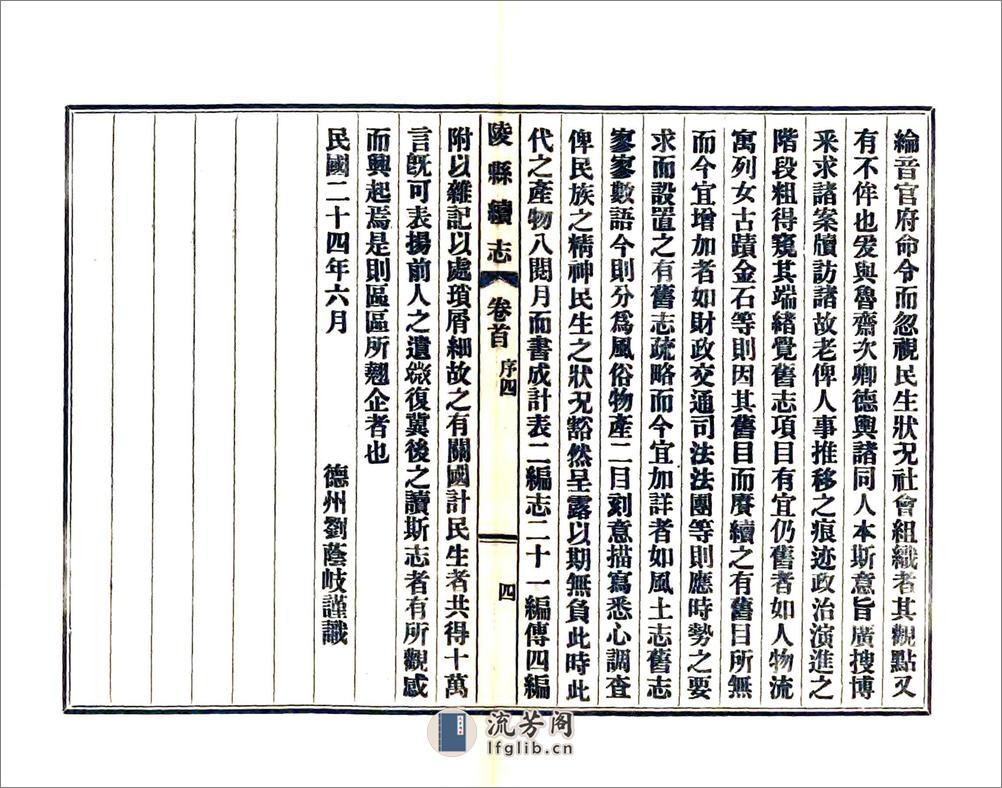 綸音官府命令而忽視民生狀況社會組織者其觀點又
有不侔也爰與魯齋次卿德輿諸同人本斯意旨廣搜博
釆求諸案牘訪諸故老俾人事推移之痕迹政治演進之
階段粗得窺其端緒覺舊志項目有宜仍舊者如人物流
寓列女古蹟金石等則因其舊目而賡續之有舊目所無
而今宜增加者如財政交通司法法團等則應時勢之要
求而設置之有舊志疏略而今宜加詳者如風土志舊志
寥寥數語今則分爲風俗物產二目刻意描寫悉心調查
俾民族之精神民生之狀況豁然呈露以期無負此時此
代之產物八閱月而書成計表二編志二十一編傳四編
陵縣續志 卷首 序四 四
附以雜記以處瑣屑細故之有關國計民生者共得十萬
言旣可表揚前人之遺徽復冀後之讀斯志者有所觀感
而興起焉是則區區所翹企者也
民國二十四年六月 德州劉蔭岐謹識
流芳阁
lfglib.cn